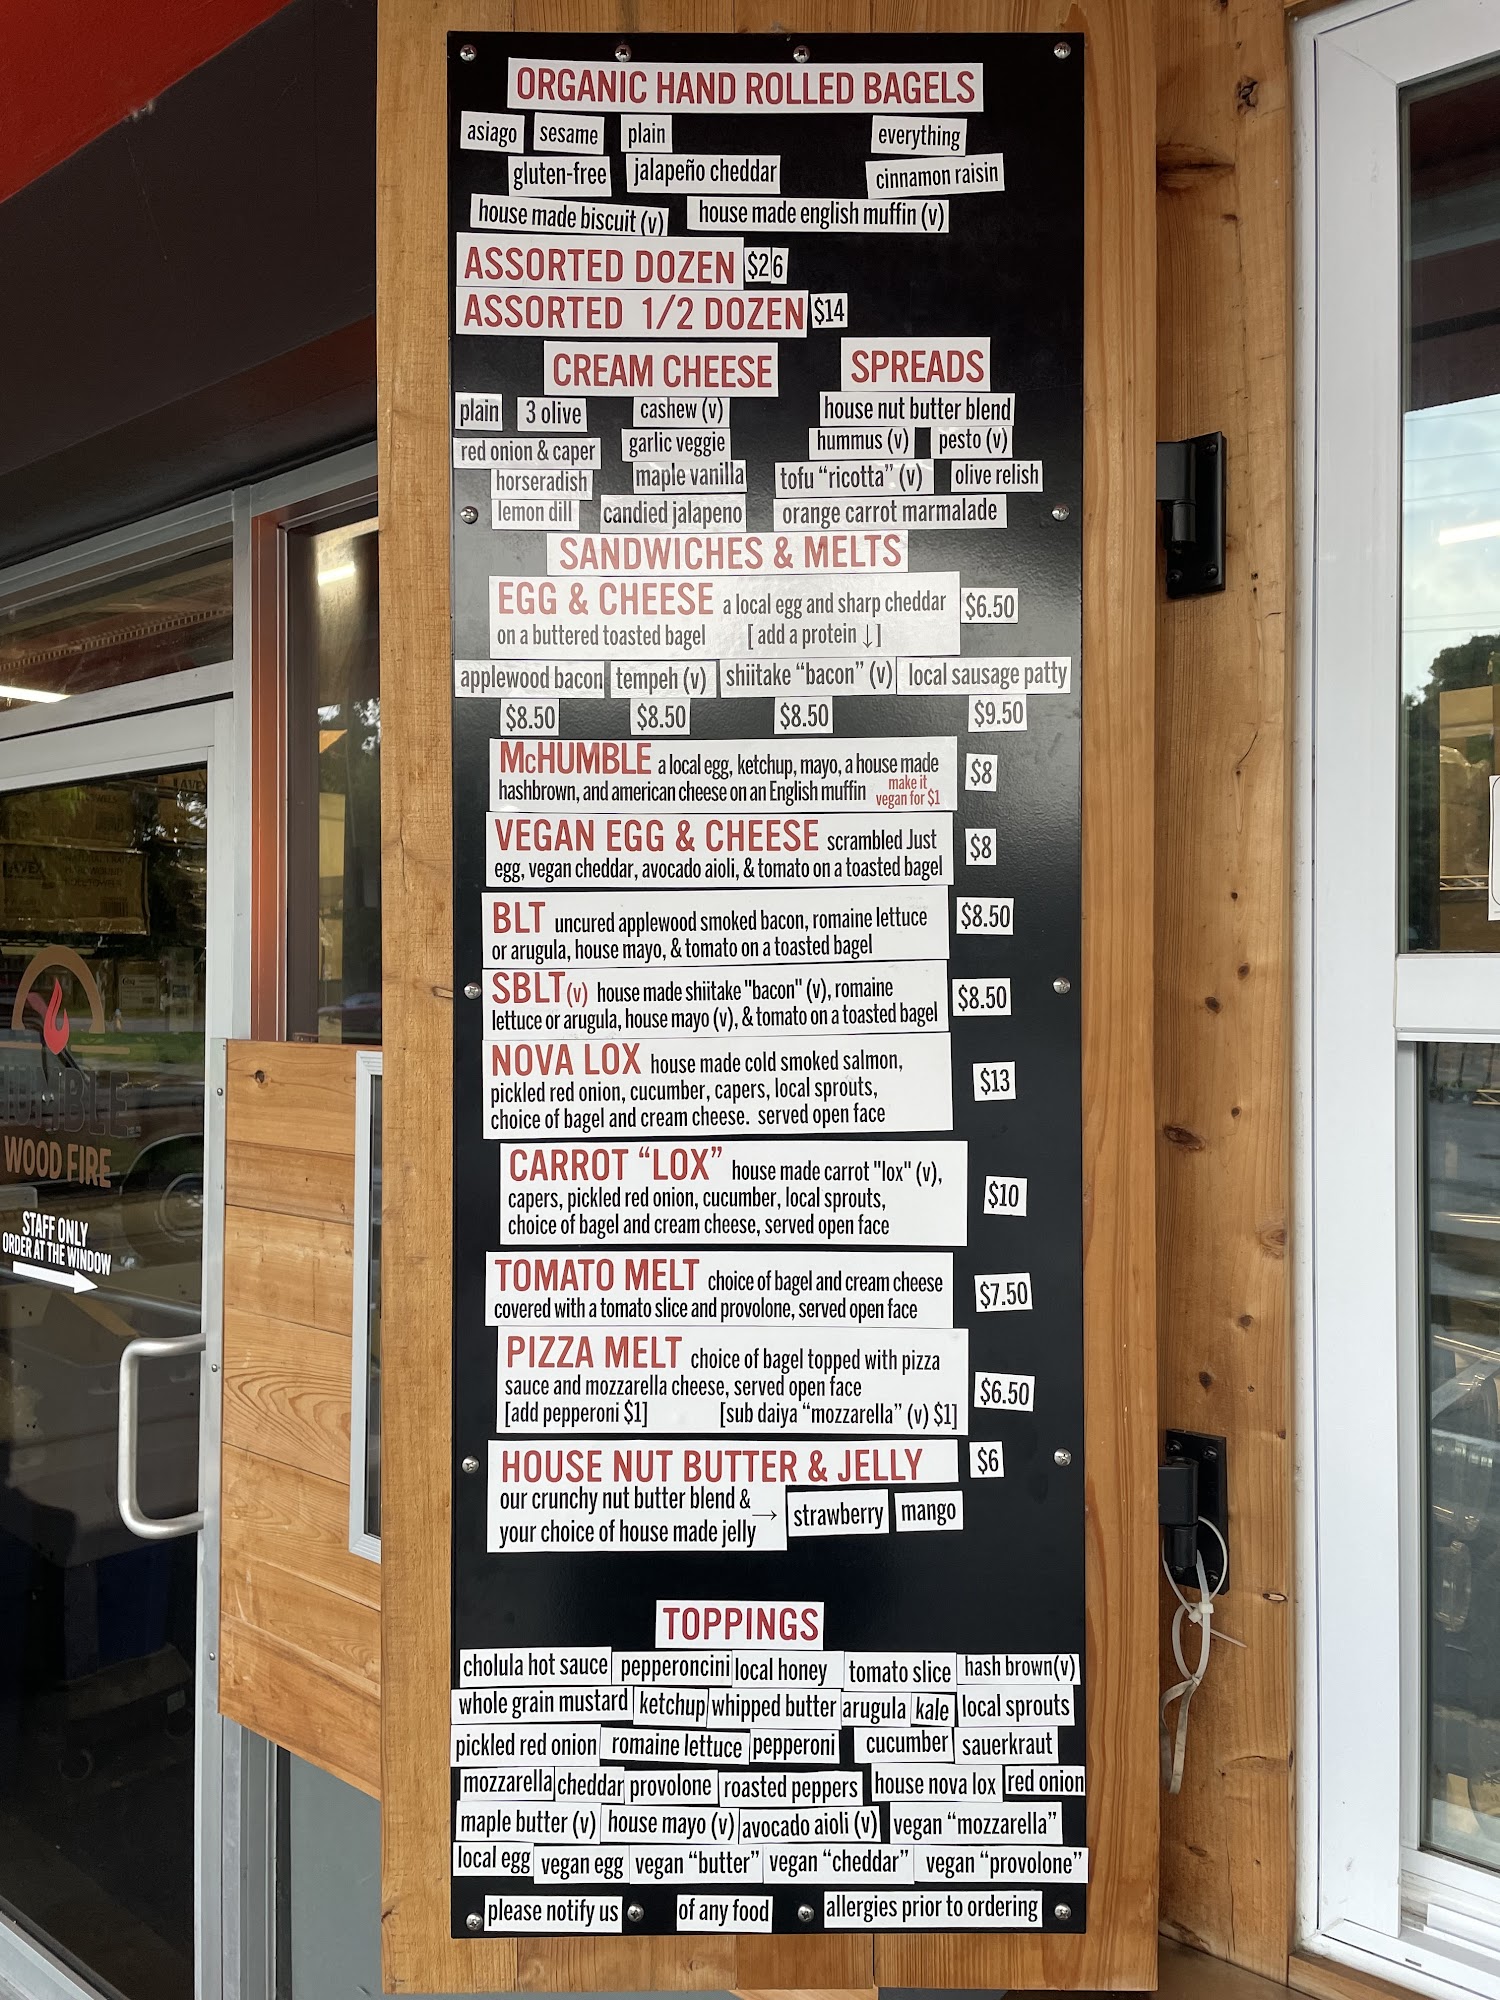 ORGANIC HAND ROLLED BAGELS
asiago sesame plain everything
gluten-free jalapeño cheddar cinnamon raisin
house made biscuit (v) house made english muffin (v)
ASSORTED DOZEN $26
ASSORTED 1/2 DOZEN $14
CREAM CHEESE SPREADS
plain 3 olive cashew (v) house nut butter blend
red onion & caper garlic veggie hummus (v) pesto (v)
horseradish maple vanilla tofu “ricotta” (v) olive relish
lemon dill candied jalapeno orange carrot marmalade
SANDWICHES & MELTS
EGG & CHEESE a local egg and sharp cheddar $6.50
on a buttered toasted bagel [ add a protein ↓ ]
applewood bacon tempeh (v) shiitake “bacon” (v) local sausage patty
$8.50 $8.50 $8.50 $9.50
McHUMBLE a local egg, ketchup, mayo, a house made $8
hashbrown, and american cheese on an English muffin make it
vegan for $1
VEGAN EGG & CHEESE scrambled Just $8
egg, vegan cheddar, avocado aioli, & tomato on a toasted bagel
BLT uncured applewood smoked bacon, romaine lettuce $8.50
or arugula, house mayo, & tomato on a toasted bagel
SBLT(v) house made shiitake "bacon" (v), romaine $8.50
lettuce or arugula, house mayo (v), & tomato on a toasted bagel
NOVA LOX house made cold smoked salmon,
pickled red onion, cucumber, capers, local sprouts, $13
choice of bagel and cream cheese. served open face
CARROT “LOX” house made carrot "lox" (v),
capers, pickled red onion, cucumber, local sprouts, $10
choice of bagel and cream cheese, served open face
TOMATO MELT choice of bagel and cream cheese $7.50
covered with a tomato slice and provolone, served open face
PIZZA MELT choice of bagel topped with pizza
sauce and mozzarella cheese, served open face $6.50
[add pepperoni $1] [sub daiya “mozzarella” (v) $1]
HOUSE NUT BUTTER & JELLY $6
our crunchy nut butter blend &
your choice of house made jelly → strawberry mango
TOPPINGS
cholula hot sauce pepperoncini local honey tomato slice hash brown(v)
whole grain mustard ketchup whipped butter arugula kale local sprouts
pickled red onion romaine lettuce pepperoni cucumber sauerkraut
mozzarella cheddar provolone roasted peppers house nova lox red onion
maple butter (v) house mayo (v) avocado aioli (v) vegan “mozzarella”
local egg vegan egg vegan “butter” vegan “cheddar” vegan “provolone”
please notify us of any food allergies prior to ordering
HUMBLE
WOOD FIRE
STAFF ONLY
ORDER AT THE WINDOW